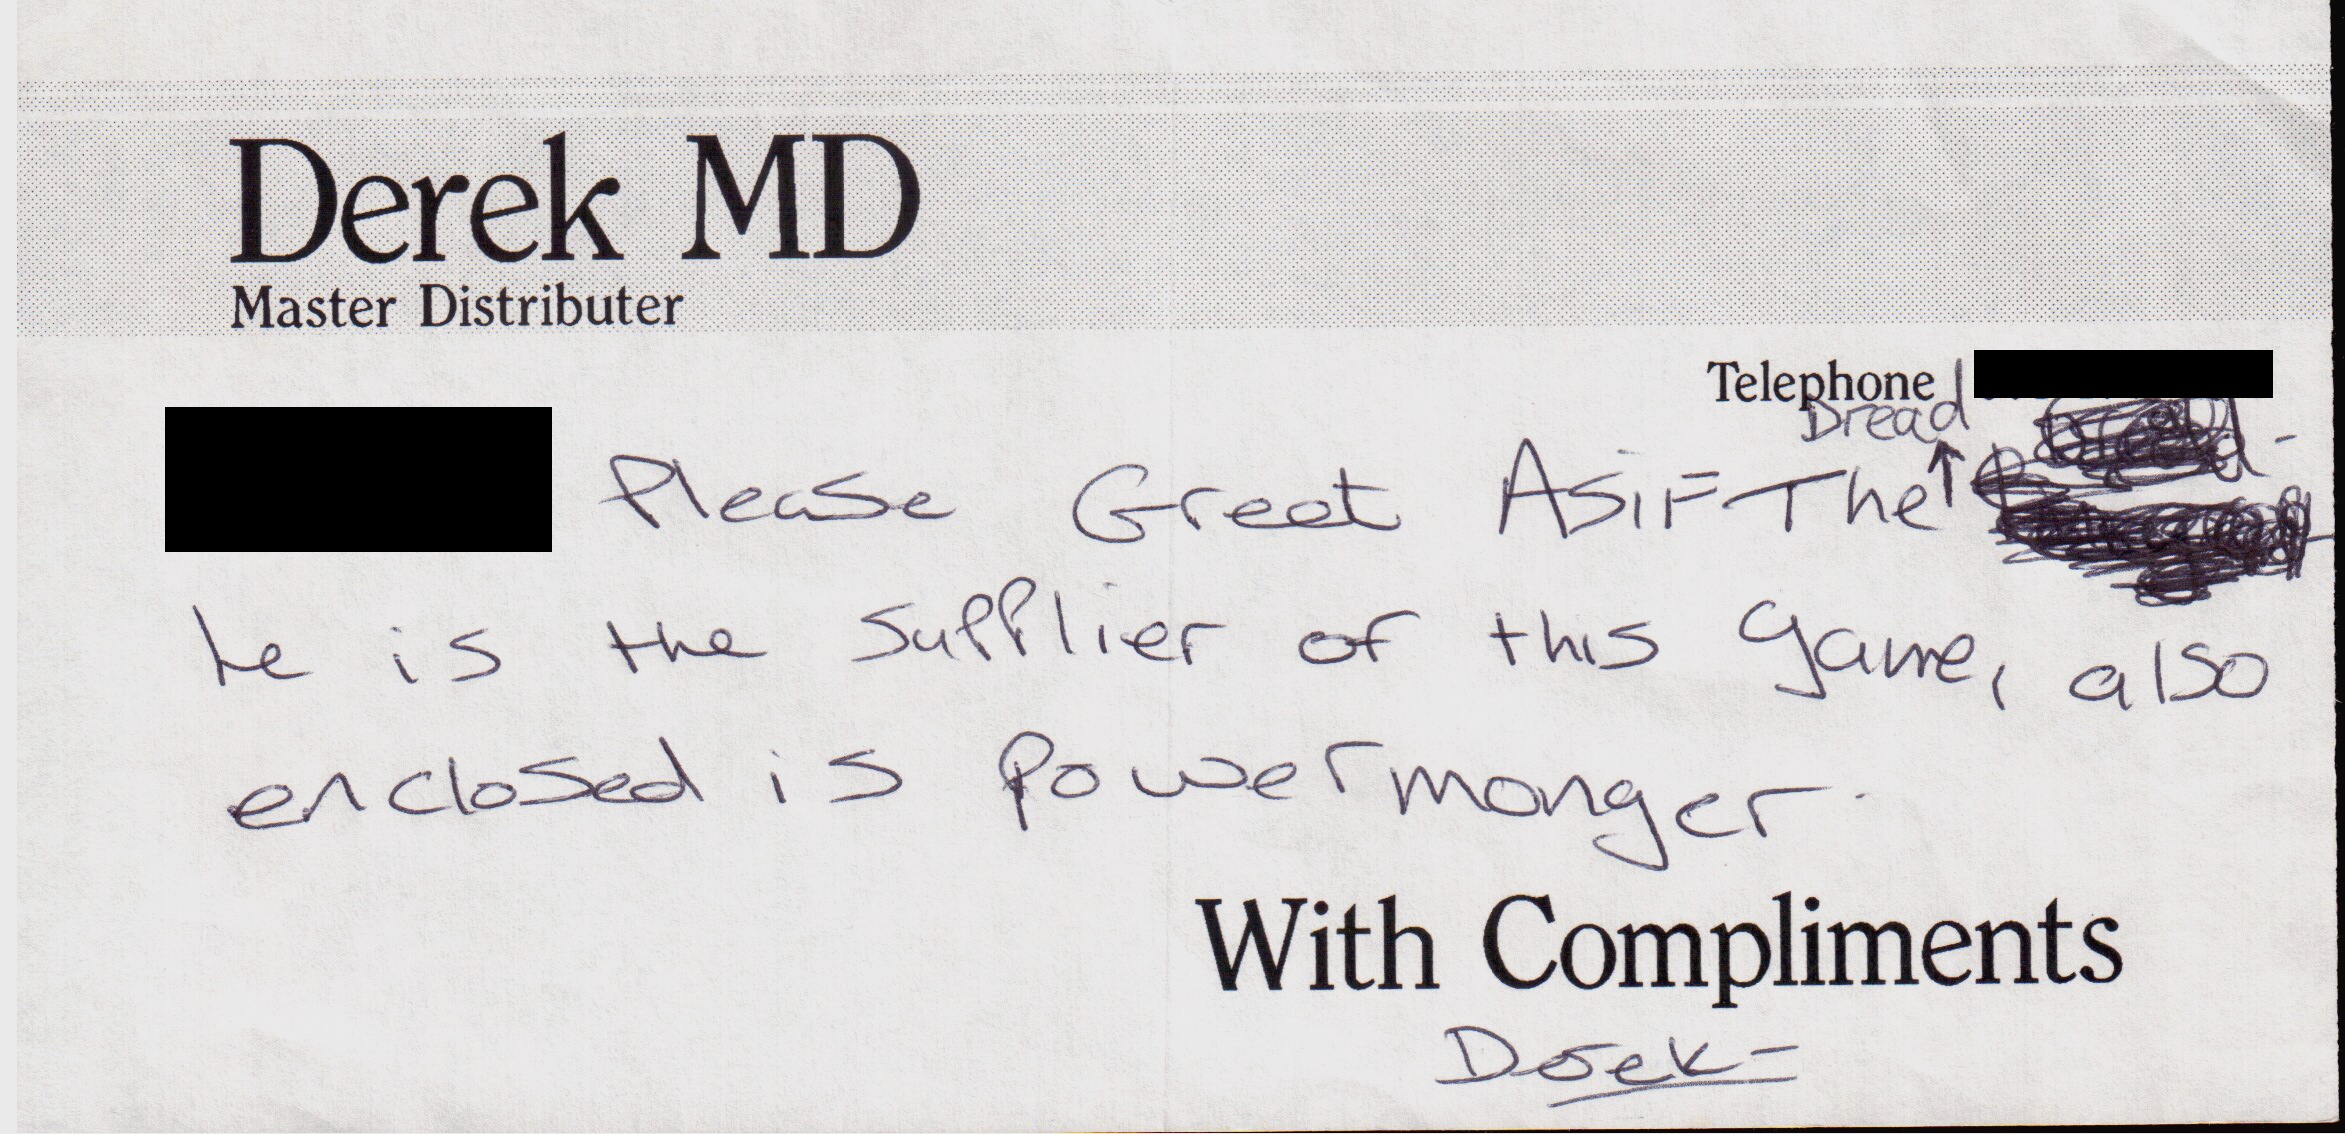 Derek MD
Master Distributer
Telephone
Dread
Please Greet Asif The
he is the supplier of this game, also
enclosed is powermonger.
With Compliments
Derek